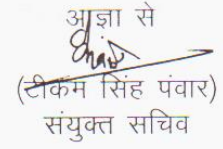 आज्ञा से
(टीकम सिंह पंवार)
संयुक्त सचिव